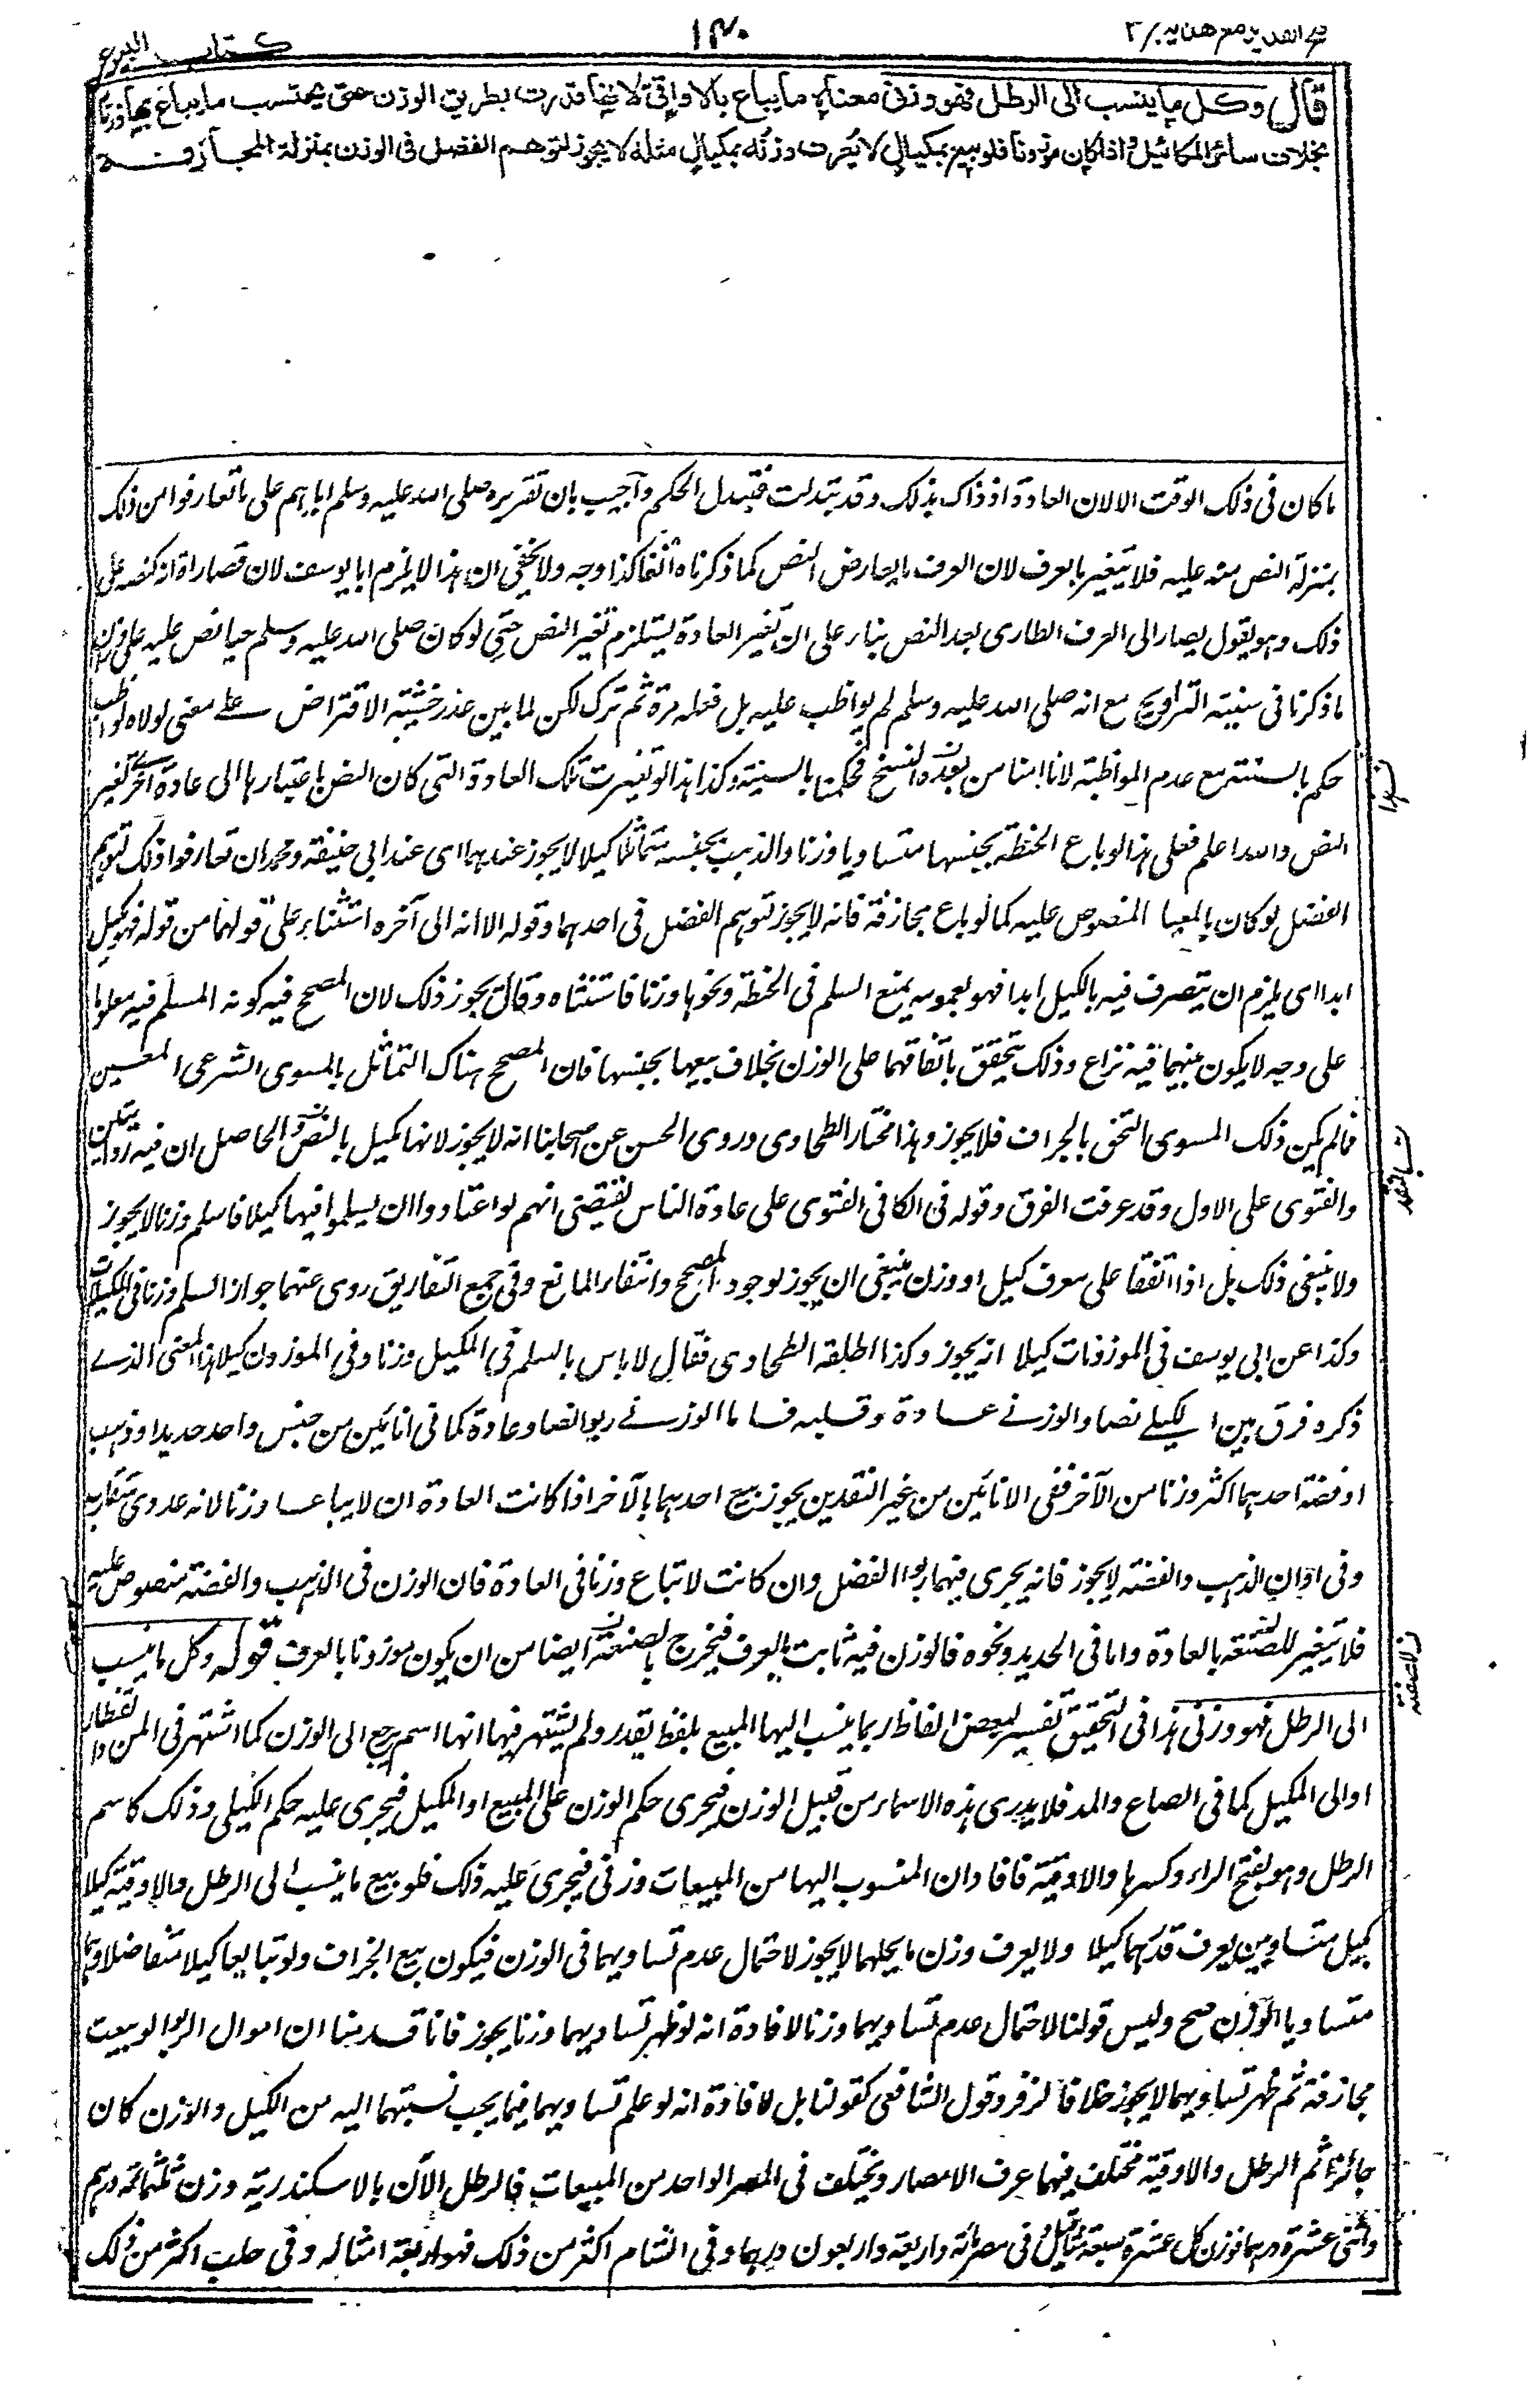 فتح القدير مع هدايه ج/٣
١٣٠
كتاب البيوع
قال وكل ما ينسب الى الرطل فهو وزنى معناه ما يباع بالاواقى لانها قدرت بطريق الوزن حتى يحتسب ما يباع بها وزنا
بخلاف سائر المكائيل واذا كان موزونا فلو بيع بمكيال لا يعرف وزنه بمكيال مثله لا يجوز لتوهم الفضل فى الوزن بمنزلة المجازفة
ما كان فى ذلك الوقت الا لان العادة اذ ذاك بذلك وقد تبدلت فتبدل الحكم واجيب بان تقريره صلى الله عليه وسلم اياهم على ما تعارفوا من ذلك
بمنزلة النص منه عليه فلا يتغير بالعرف لان العرف لا يعارض النص كما ذكرناه انفا كذا وجه ولا يخفى ان هذا لا يلزم ابا يوسف لان قصاراه انه كنصه على
ذلك وهو يقول يصار الى العرف الطارى بعد النص بناء على ان تغير العادة يستلزم تغير النص حتى لو كان صلى الله عليه وسلم حيا نص عليه على وزان
ما ذكرنا فى سنية التراويح مع انه صلى الله عليه وسلم لم يواظب عليه بل فعله مرة ثم ترك لكن لما بين عذر خشية الافتراض على معنى لولاه لواظب
حكم بالسنية مع عدم المواظبة لانا امنا من بعده النسخ فحكمنا بالسنية وكذا هذا لو تغيرت تلك العادة التى كان النص باعتبارها الى عادة اخرى تغير
النص والله اعلم فعلى هذا لو باع الحنطة بجنسها متساويا وزنا والذهب بجنسه متماثلا كيلا لا يجوز عندهما اى عند ابى حنيفة ومحمد ان تعارفوا ذلك لتوهم
الفضل لو كان بالمعيار المنصوص عليه كما لو باع مجازفة فانه لا يجوز لتوهم الفضل فى احدهما وقوله الا انه الى آخره استثناء على قولهما من قوله فهو مكيل
ابدا اى يلزم ان يتصرف فيه بالكيل ابدا فهو بعمومه يمنع السلم فى الحنطة ونحوها وزنا فاستثناه وقال يجوز ذلك لان المصحح فيه كونه المسلم فيه معلوما
على وجه لا يكون بينهما فيه نزاع وذلك يتحقق باتفاقهما على الوزن بخلاف بيعها بجنسها فان المصحح هناك التماثل بالمسوى الشرعى المعين
فما لم يكن ذلك المسوى التحق بالجزاف فلا يجوز وهذا مختار الطحاوى وروى الحسن عن اصحابنا انه لا يجوز لانها مكيل بالنص والحاصل ان فيه روايتين
والفتوى على الاول وقد عرفت الفرق وقوله فى الكافى الفتوى على عادة الناس يقتضى انهم لو اعتادوا ان يسلموا فيها كيلا فاسلم وزنا لا يجوز
ولا ينبغى ذلك بل اذا اتفقا على معرف كيل او وزن ينبغى ان يجوز لوجود المصحح وانتفاء المانع وفى جمع التفاريق روى عنهما جواز السلم وزنا فى المكيلات
وكذا عن ابى يوسف فى الموزونات كيلا انه يجوز وكذا اطلقه الطحاوى فقال لا باس بالسلم فى المكيل وزنا وفى الموزون كيلا هذا المعنى الذى
ذكره فرق بين الكيلى نصا والوزنى عادة وقلبه فاما الوزنى ربوا نصا وعادة كما فى انائين من جنس واحد حديدا وذهب
او فضة احدهما اكثر وزنا من الآخر ففى الانائين من غير النقدين يجوز بيع احدهما بالآخر اذا كانت العادة ان لا يباعا وزنا لانه عددى متقارب
وفى اوان الذهب والفضة لا يجوز فانه يجرى فيهما ربوا الفضل وان كانت لا تباع وزنا فى العادة فان الوزن فى الذهب والفضة منصوص عليه
فلا يتغير للصنعة بالعادة واما فى الحديد ونحوه فالوزن فيه ثابت بالعرف فيخرج بالصنعة ايضا من ان يكون موزونا بالعرف قوله وكل ما ينسب
الى الرطل فهو وزنى هذا فى التحقيق تفسير لبعض الفاظ ربما ينسب اليها المبيع بلفظ يقدر ولم يشتهر فيها انها اسم يرجع الى الوزن كما اشتهر فى المن والقنطار
او الى المكيل كما فى الصاع والمد فلا يدرى هذه الاسماء من قبيل الوزن فيجرى حكم الوزن على المبيع او المكيل فيجرى عليه حكم الكيلى وذلك كاسم
الرطل وهو بفتح الراء وكسرها والاوقية فافاد ان المنسوب اليها من المبيعات وزنى فيجرى عليه ذلك فلو بيع ما ينسب الى الرطل والاوقية كيلا
بكيل متساويين يعرف قدرهما كيلا ولا يعرف وزن ما يحلهما لا يجوز لاحتمال عدم تساويهما فى الوزن فيكون بيع الجزاف ولو تبايعا كيلا متفاضلا وهما
متساويا الوزن صح وليس قولنا لاحتمال عدم تساويهما وزنا لافادة انه لو ظهر تساويهما وزنا يجوز فانا قدمنا ان اموال الربوا لو بيعت
مجازفة ثم ظهر تساويهما لا يجوز خلافا لزفر وقول الشافعى كقولنا بل لافادة انه لو علم تساويهما فيما يجب نسبتهما اليه من الكيل والوزن كان
جائزا ثم الرطل والاوقية مختلف فيهما عرف الامصار ويختلف فى المصر الواحد من المبيعات فالرطل الآن بالاسكندرية وزن ثلثمائة درهم
واثنى عشرة درهما فوزن كل عشرة سبعة مثاقيل وفى مصر مائة واربعة واربعون درهما وفى الشام اكثر من ذلك فهو اربعة امثاله وفى حلب اكثر من ذلك